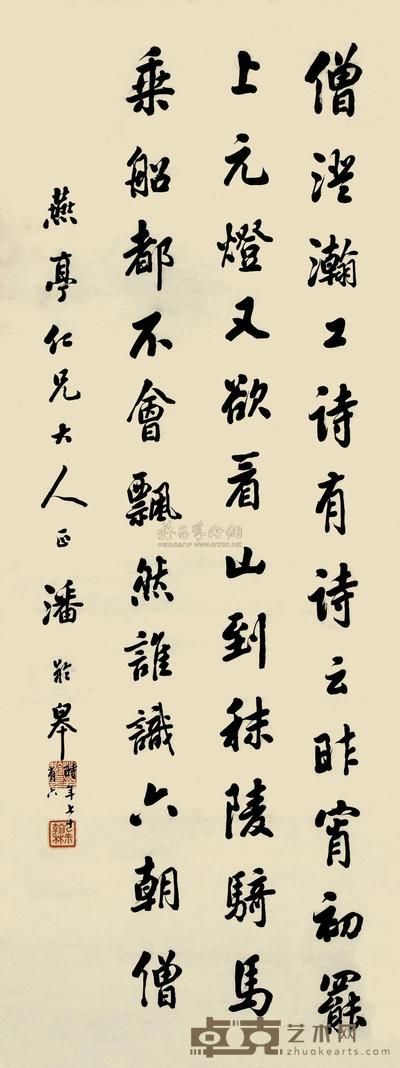 僧澄瀚工詩有詩云昨宵初罷
上元燈又欲看山到秣陵騎馬
乘船都不會飄然誰識六朝僧
燕亭仁兄大人正 潘齡皋
時年七十
有六
www.artron.net
卓克艺术网
www.zhuokearts.com